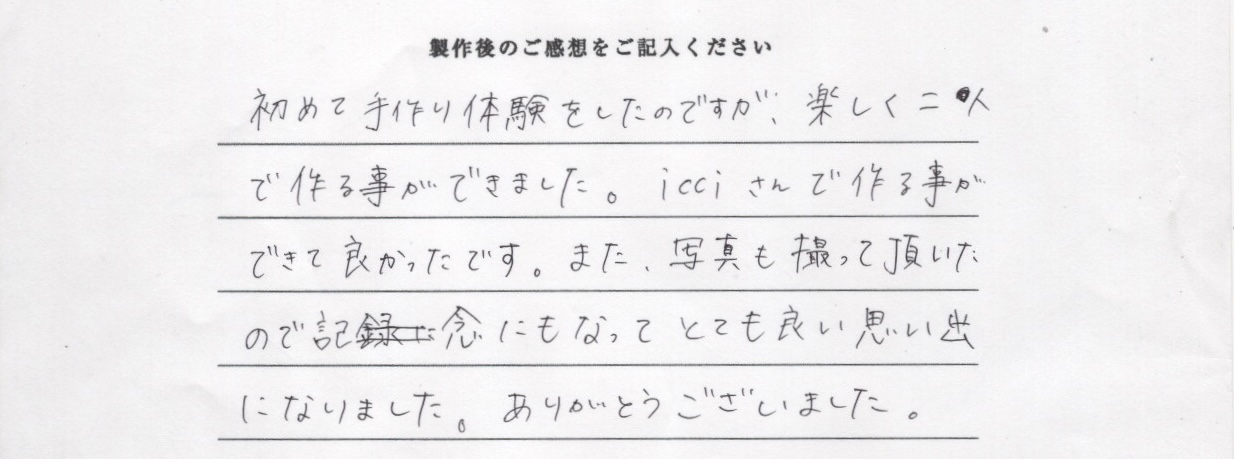 製作後のご感想をご記入ください
初めて手作り体験をしたのですが、楽しく二人
で作る事ができました。icciさんで作る事が
できて良かったです。また、写真も撮って頂いた
ので記念にもなってとても良い思い出
になりました。ありがとうございました。